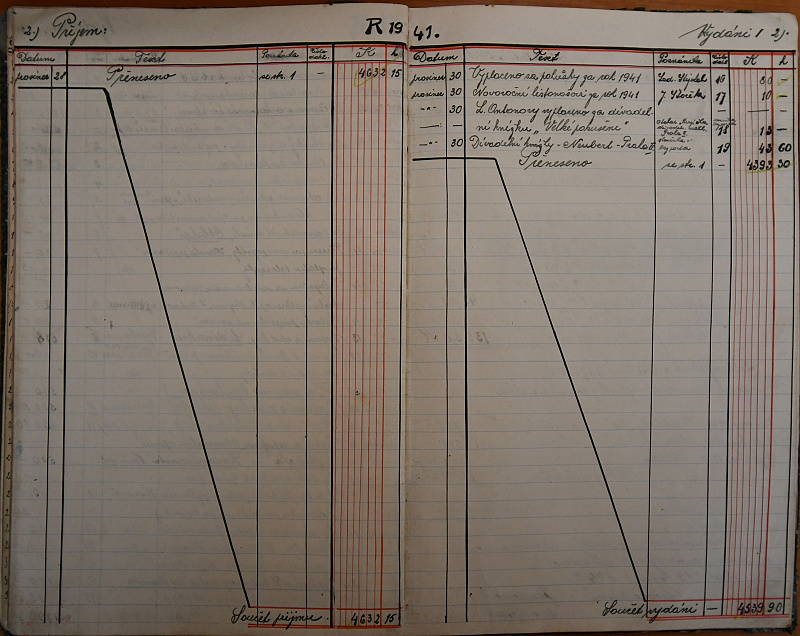 2.) Příjem: R 19
Datum Text Poznámka Číslo dokl. K h
prosinec 28 Přeneseno se str. 1 — 4632 15
Součet příjmu. 4632 15
41. Vydání 2).
Datum Text Poznámka K h
prosinec 30 Vyplaceno za pohřby za rok 1941 Lad. 16 80 —
prosinec 30 Novoroční listonošovi za rok 1941 J. 17 10 —
-"- 30 L. Ontonovy vyplaceno za divadel-
ní knížku „Velké pokušení" 18 13 —
-"- 30 Divadelní knížky - Neubert - Praha II. 19 43 60
Přeneseno se str. 1 — 4393 30
Součet vydání — 4539 90